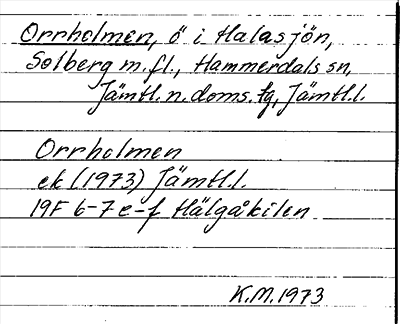 Orrholmen, ö i Halasjön,
Solberg m.fl., Hammerdals sn,
Jämtl.n.doms.tg, Jämtl.l.
Orrholmen
ek (1973) Jämtl.l.
19F 6-7 e-f Hälgåkilen
K.M. 1973